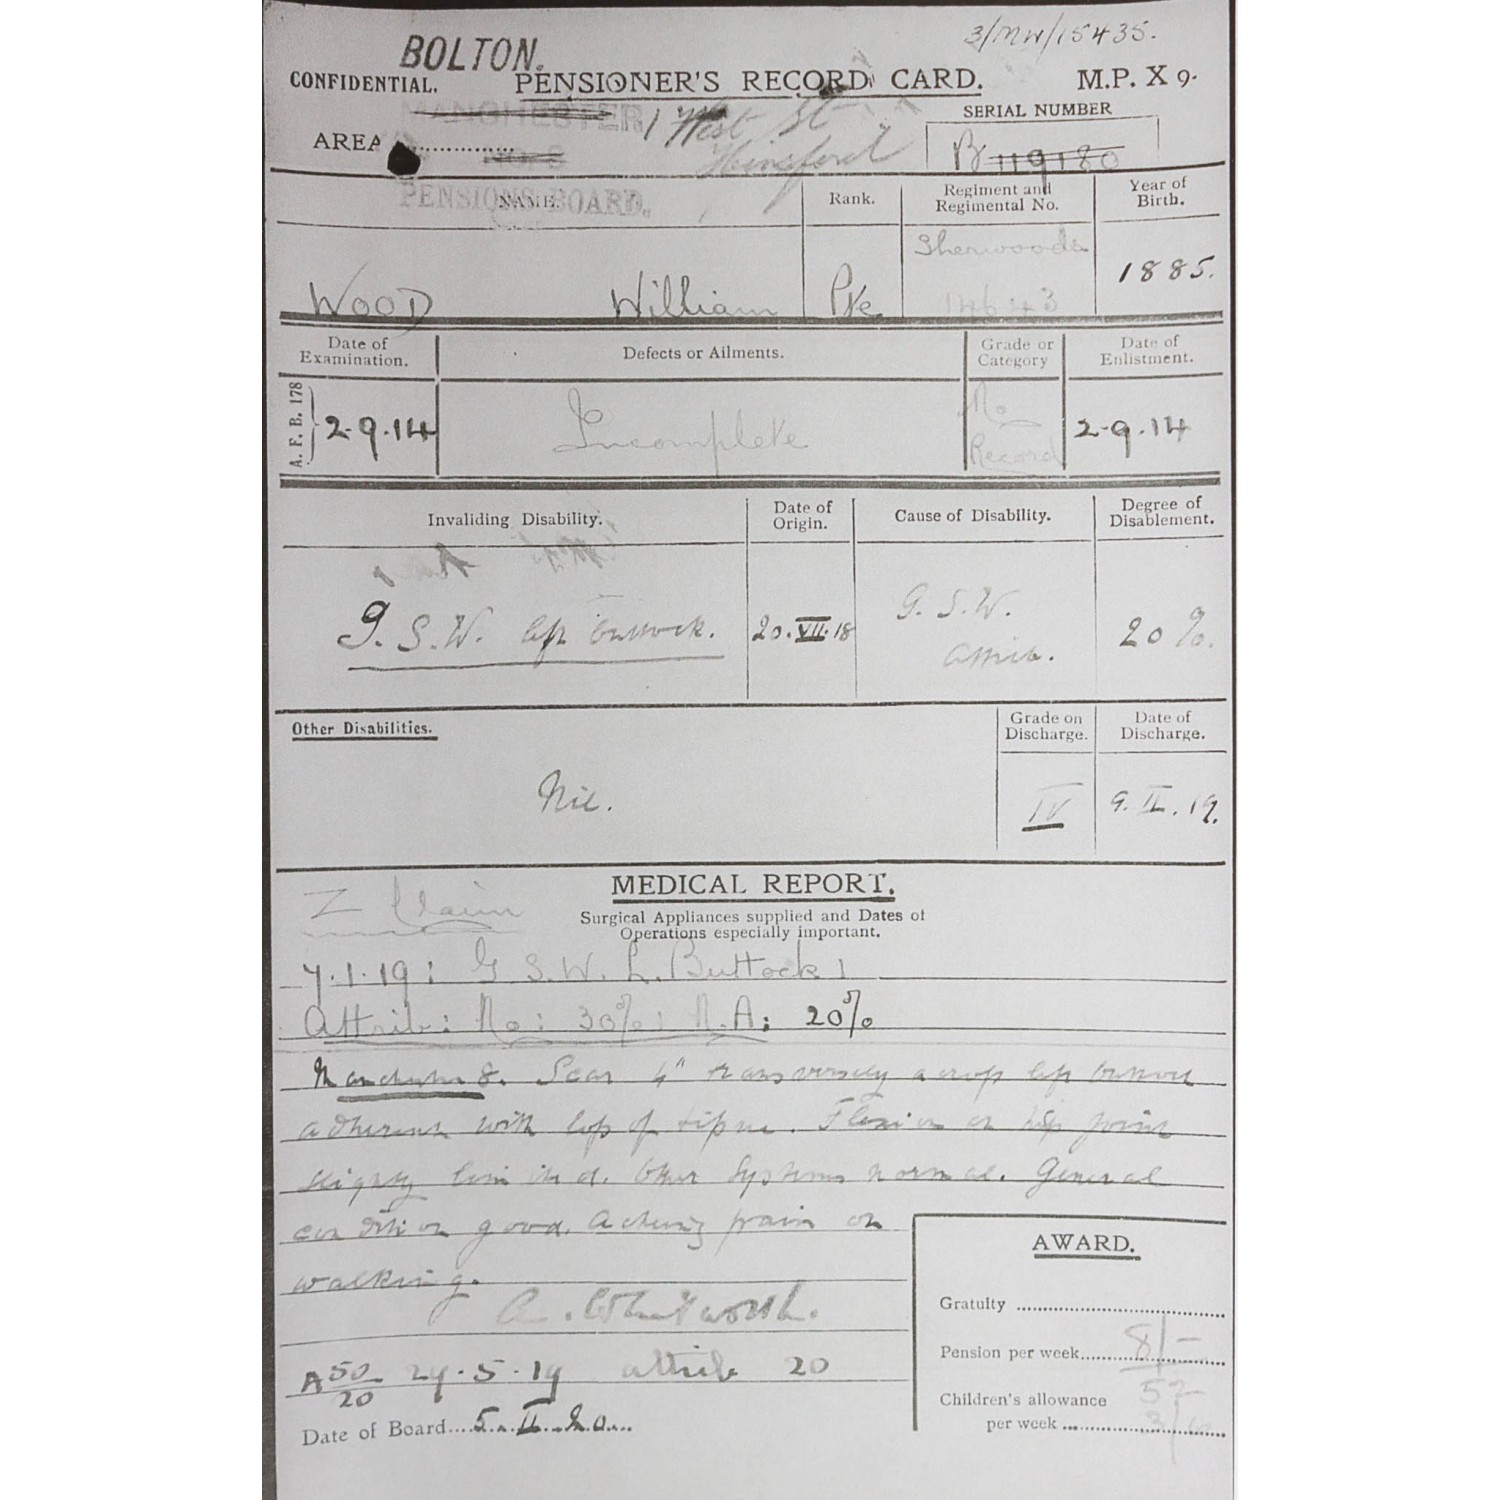 3/MW/15435.
BOLTON.
CONFIDENTIAL. PENSIONER'S RECORD CARD. M.P. X 9.
MANCHESTER 1 West St SERIAL NUMBER
AREA ............... B 119180
PENSIONS BOARD.
NAME. Rank. Regiment and Regimental No. Year of Birth.
WOOD William Pte Sherwoods 14643 1885.
Date of Examination. Defects or Ailments. Grade or Category Date of Enlistment.
A. F. B. 178 2.9.14 Incomplete No Record 2.9.14
Invaliding Disability. Date of Origin. Cause of Disability. Degree of Disablement.
G.S.W. left buttock. 20.VII.18 G.S.W. attrib. 20%.
Other Disabilities. Grade on Discharge. Date of Discharge.
Nil. IV 9.II.19.
MEDICAL REPORT.
Z Claim Surgical Appliances supplied and Dates of
Operations especially important.
7.1.19: G S.W. L. Buttock:
Attrib: No: 30%: N.A: 20%
Manchester 8. Scar 4" transversely across left buttock
adherent with loss of tissue. Flexion on hip joint
slightly limited. Other systems normal. General
condition good. Aching pain on
walking.
A. Whitworth.
A 50/20 29.5.19 attrib 20
Date of Board....5..II..20...
AWARD.
Gratuity
Pension per week 8/-
Children's allowance
per week